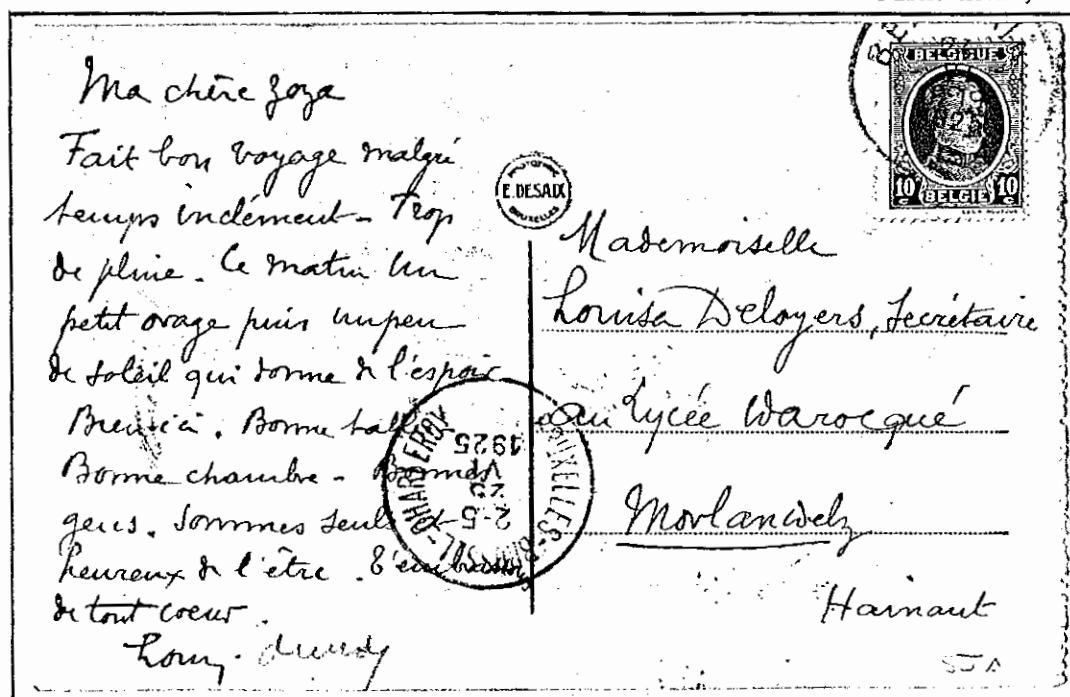 Ma chère Zoza
Fait bon voyage malgré
temps inclément - Trop
de pluie. Ce matin un
petit orage puis un peu
de soleil qui donne de l'espoir
Bien ici. Bonne table
Bonne chambre - Bonnes
gens. Sommes seuls &
heureux de l'être. T'embrassons
de tout coeur.
E. DESAIX
BRUXELLES
BELGIQUE
10 BELGIE 10
Mademoiselle
Louisa Deloyers, Secrétaire
au Lycée Warocqué
Morlanwelz
Hainaut
CHARLEROY
1925
2-5